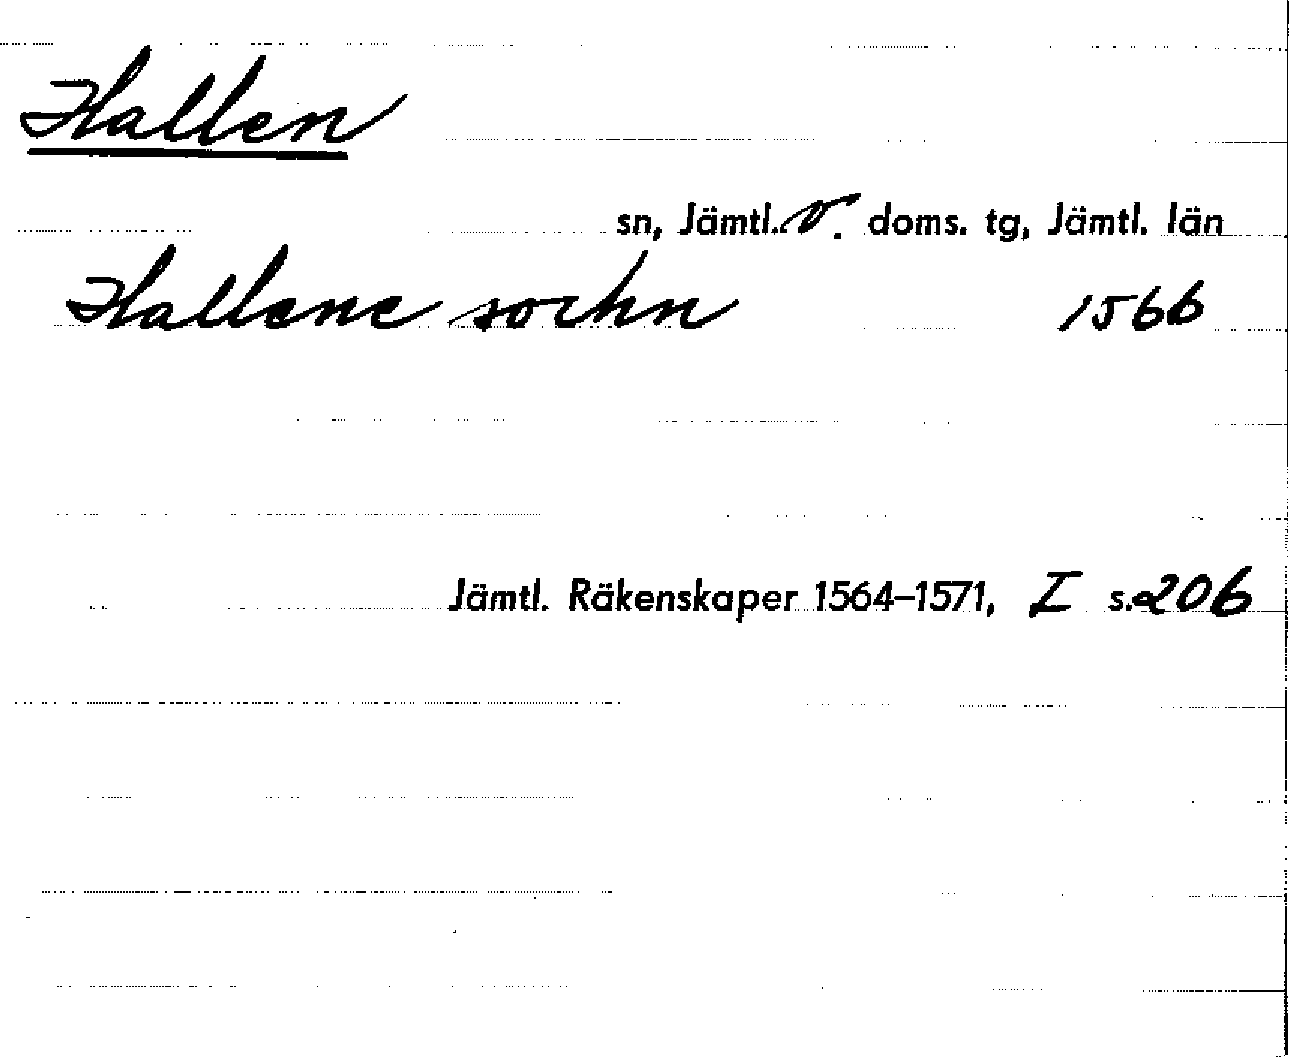 Hallen
sn, Jämtl. v. doms. tg, Jämtl. län
Hallene sochn 1566
Jämtl. Räkenskaper 1564–1571, I s. 206